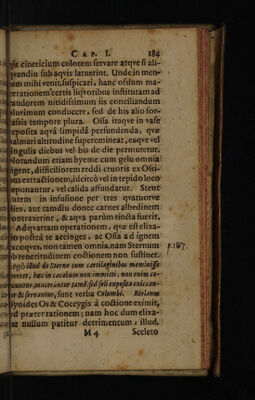 CAP. I. 184
gis cinericium colorem servare atque si ali-
quandiu sub aquis latuerint. Unde in men-
tem mihi venit, suspicari, hanc ossium ma-
cerationem certis liquoribus institutam ad
candorem nitidissimum iis conciliandum
plurimum conducere, sed de his alio for-
tassis tempore plura. Ossa itaque in vase
reposita aquâ limpidâ perfundenda, quæ
palmari altitudine superemineat, eaque vel
singulis diebus vel bis de die permutetur.
Notandum etiam hyeme cum gelu omnia
rigent, difficiliorem reddi cruoris ex Ossi-
bus extractionem, idcircò vel in tepido loco
reponantur, vel calida affundatur. Stent
autem in infusione per tres quatuorve
dies, aut tamdiu donec carnes albedinem
contraxerint, & aqua parùm tincta fuerit.
Ad quartam operationem, quæ est elixa-
tio posteà te accinges, ac Ossa ad ignem
excoques, non tamen omnia, nam Sternum p. 187.
ob reneritudinem coctionem non sustinet.
Ergò illud de Sterno cum cartilaginibus meminisse
oportet, hæc in cacabum non immitti, non enim co-
quuntur, macerantur tamē, sed soli exposita exiccan-
tur & servantur, sunt verba Columbi. Riolanus
Hyoides Os & Coccygis à coctione eximit,
sed præter rationem; nam hoc dum elixa-
tur nullum patitur detrimentum: illud,
M 4 Sceleto